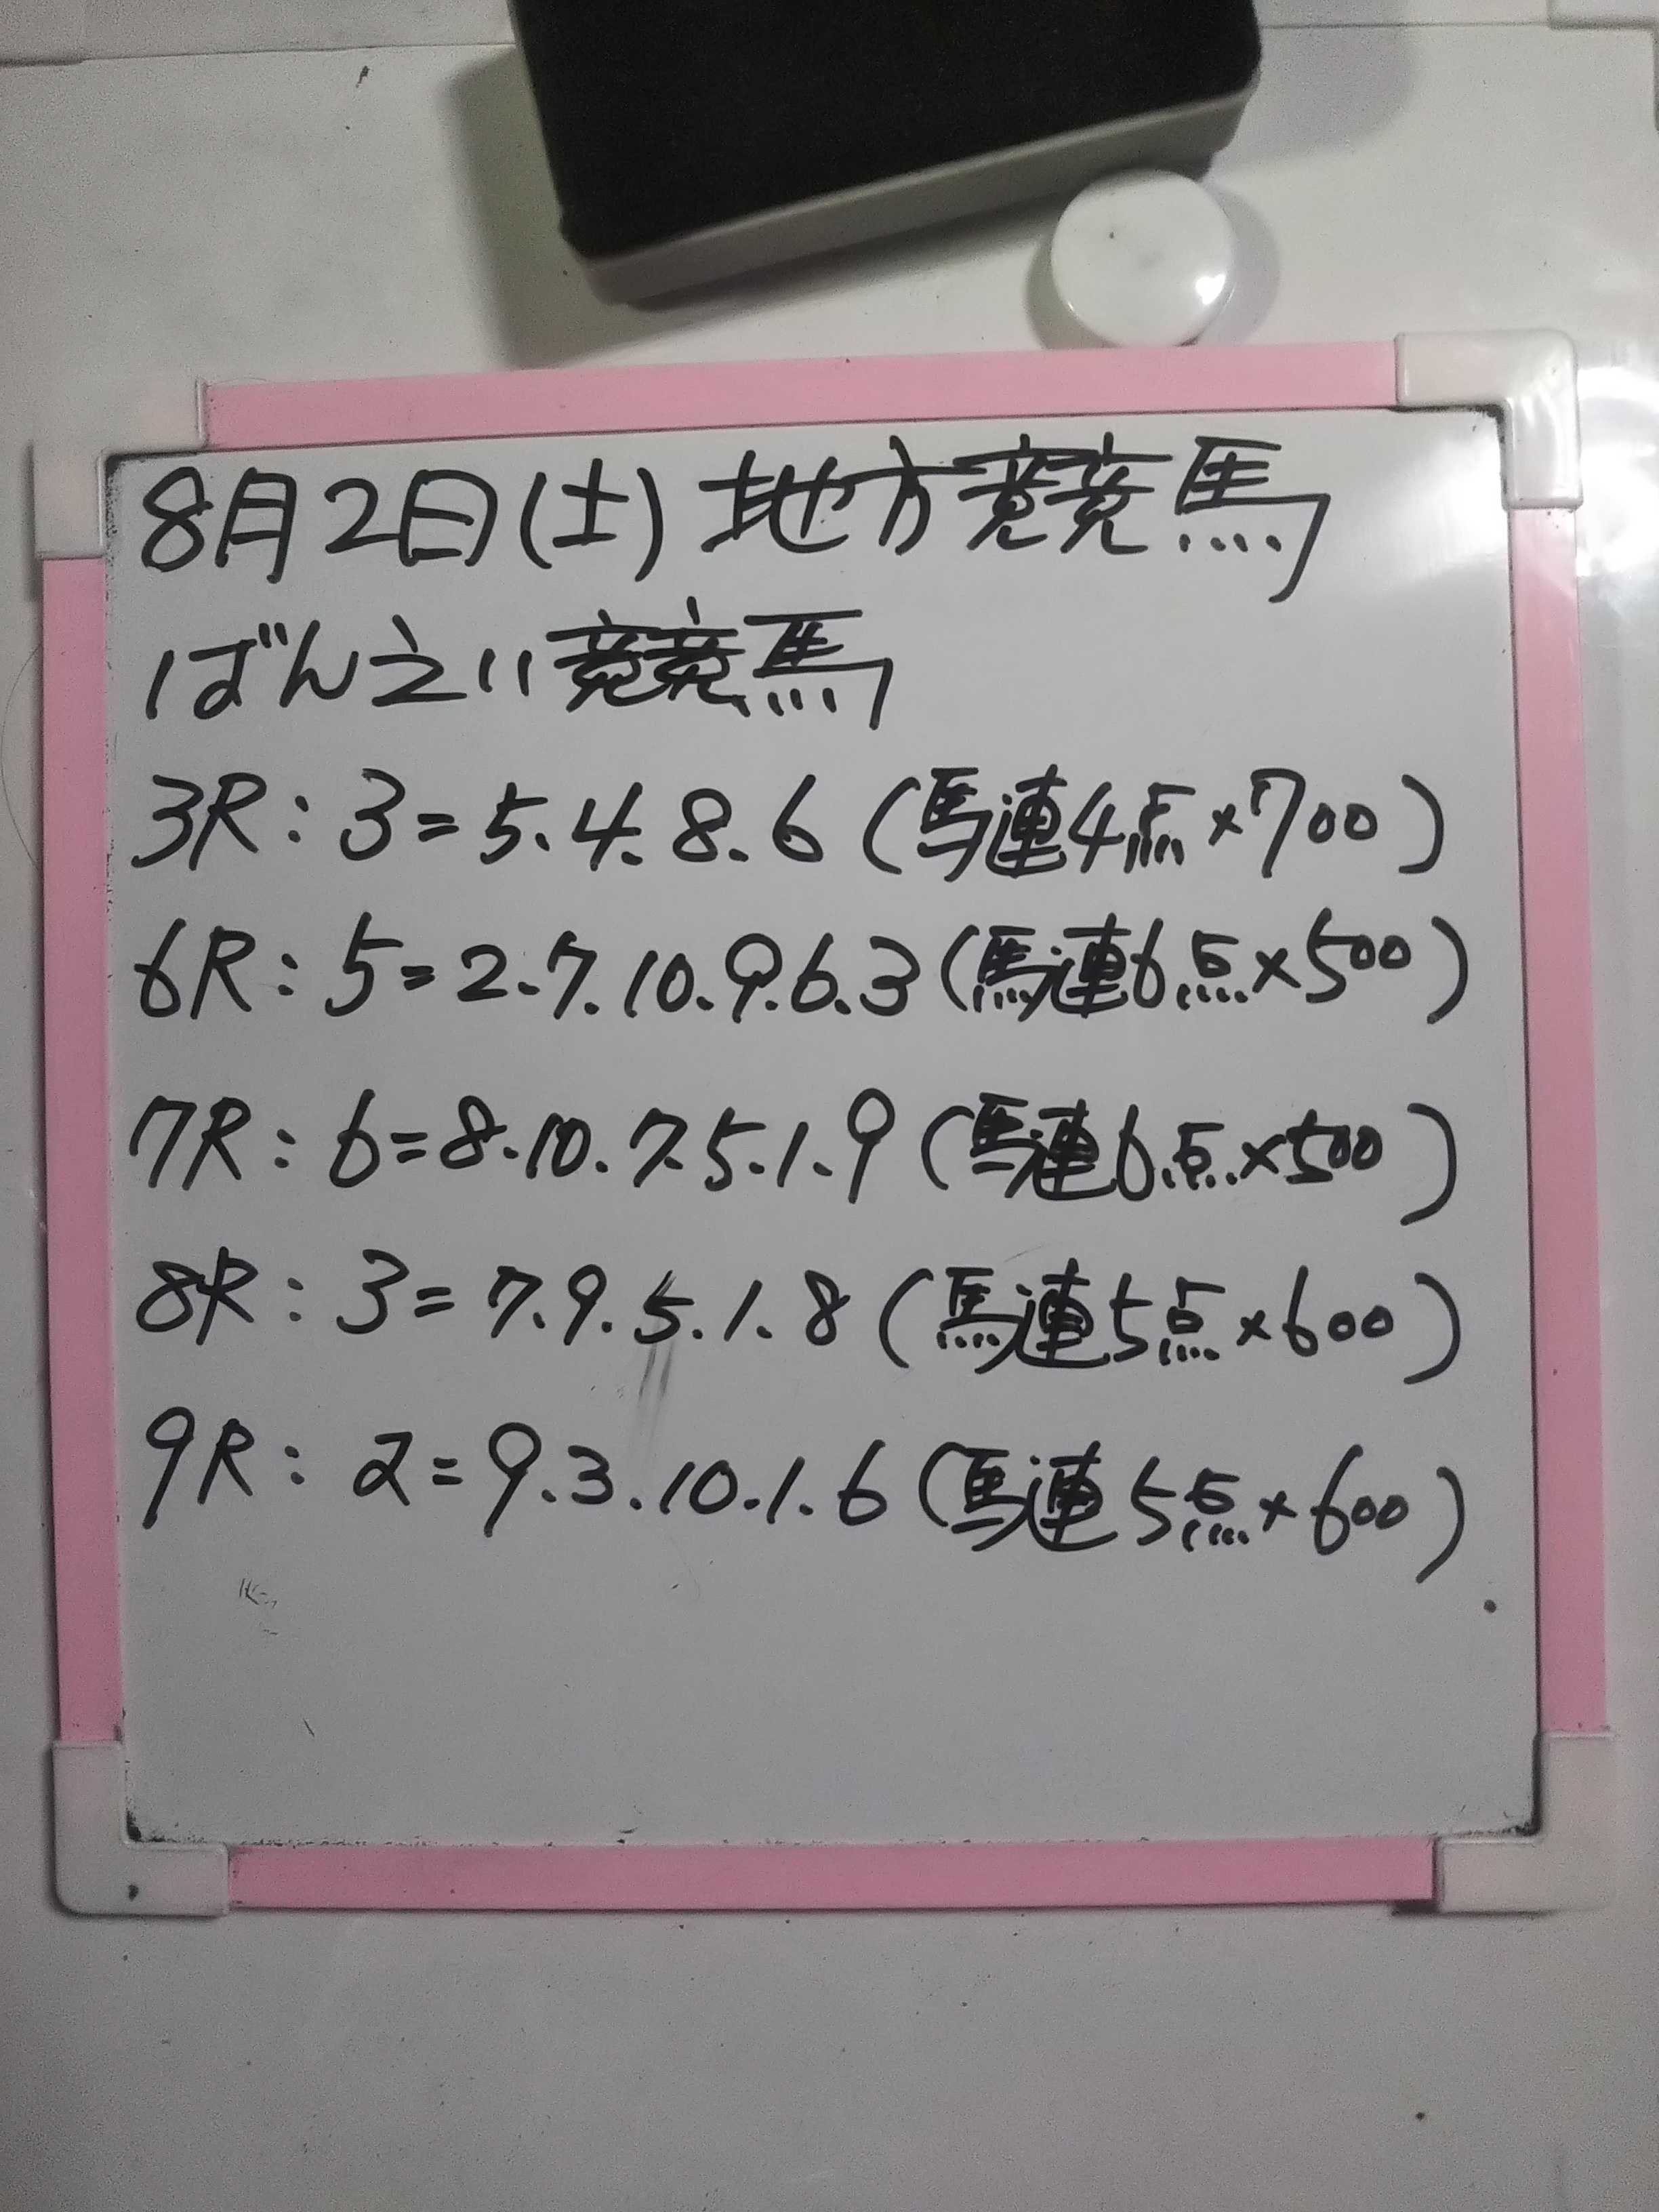 8月2日(土)地方競馬
ばんえい競馬
3R:3=5.4.8.6(馬連4点×700)
6R:5=2.7.10.9.6.3(馬連6点×500)
7R:6=8.10.7.5.1.9(馬連6点×500)
8R:3=7.9.5.1.8(馬連5点×600)
9R:2=9.3.10.1.6(馬連5点×600)